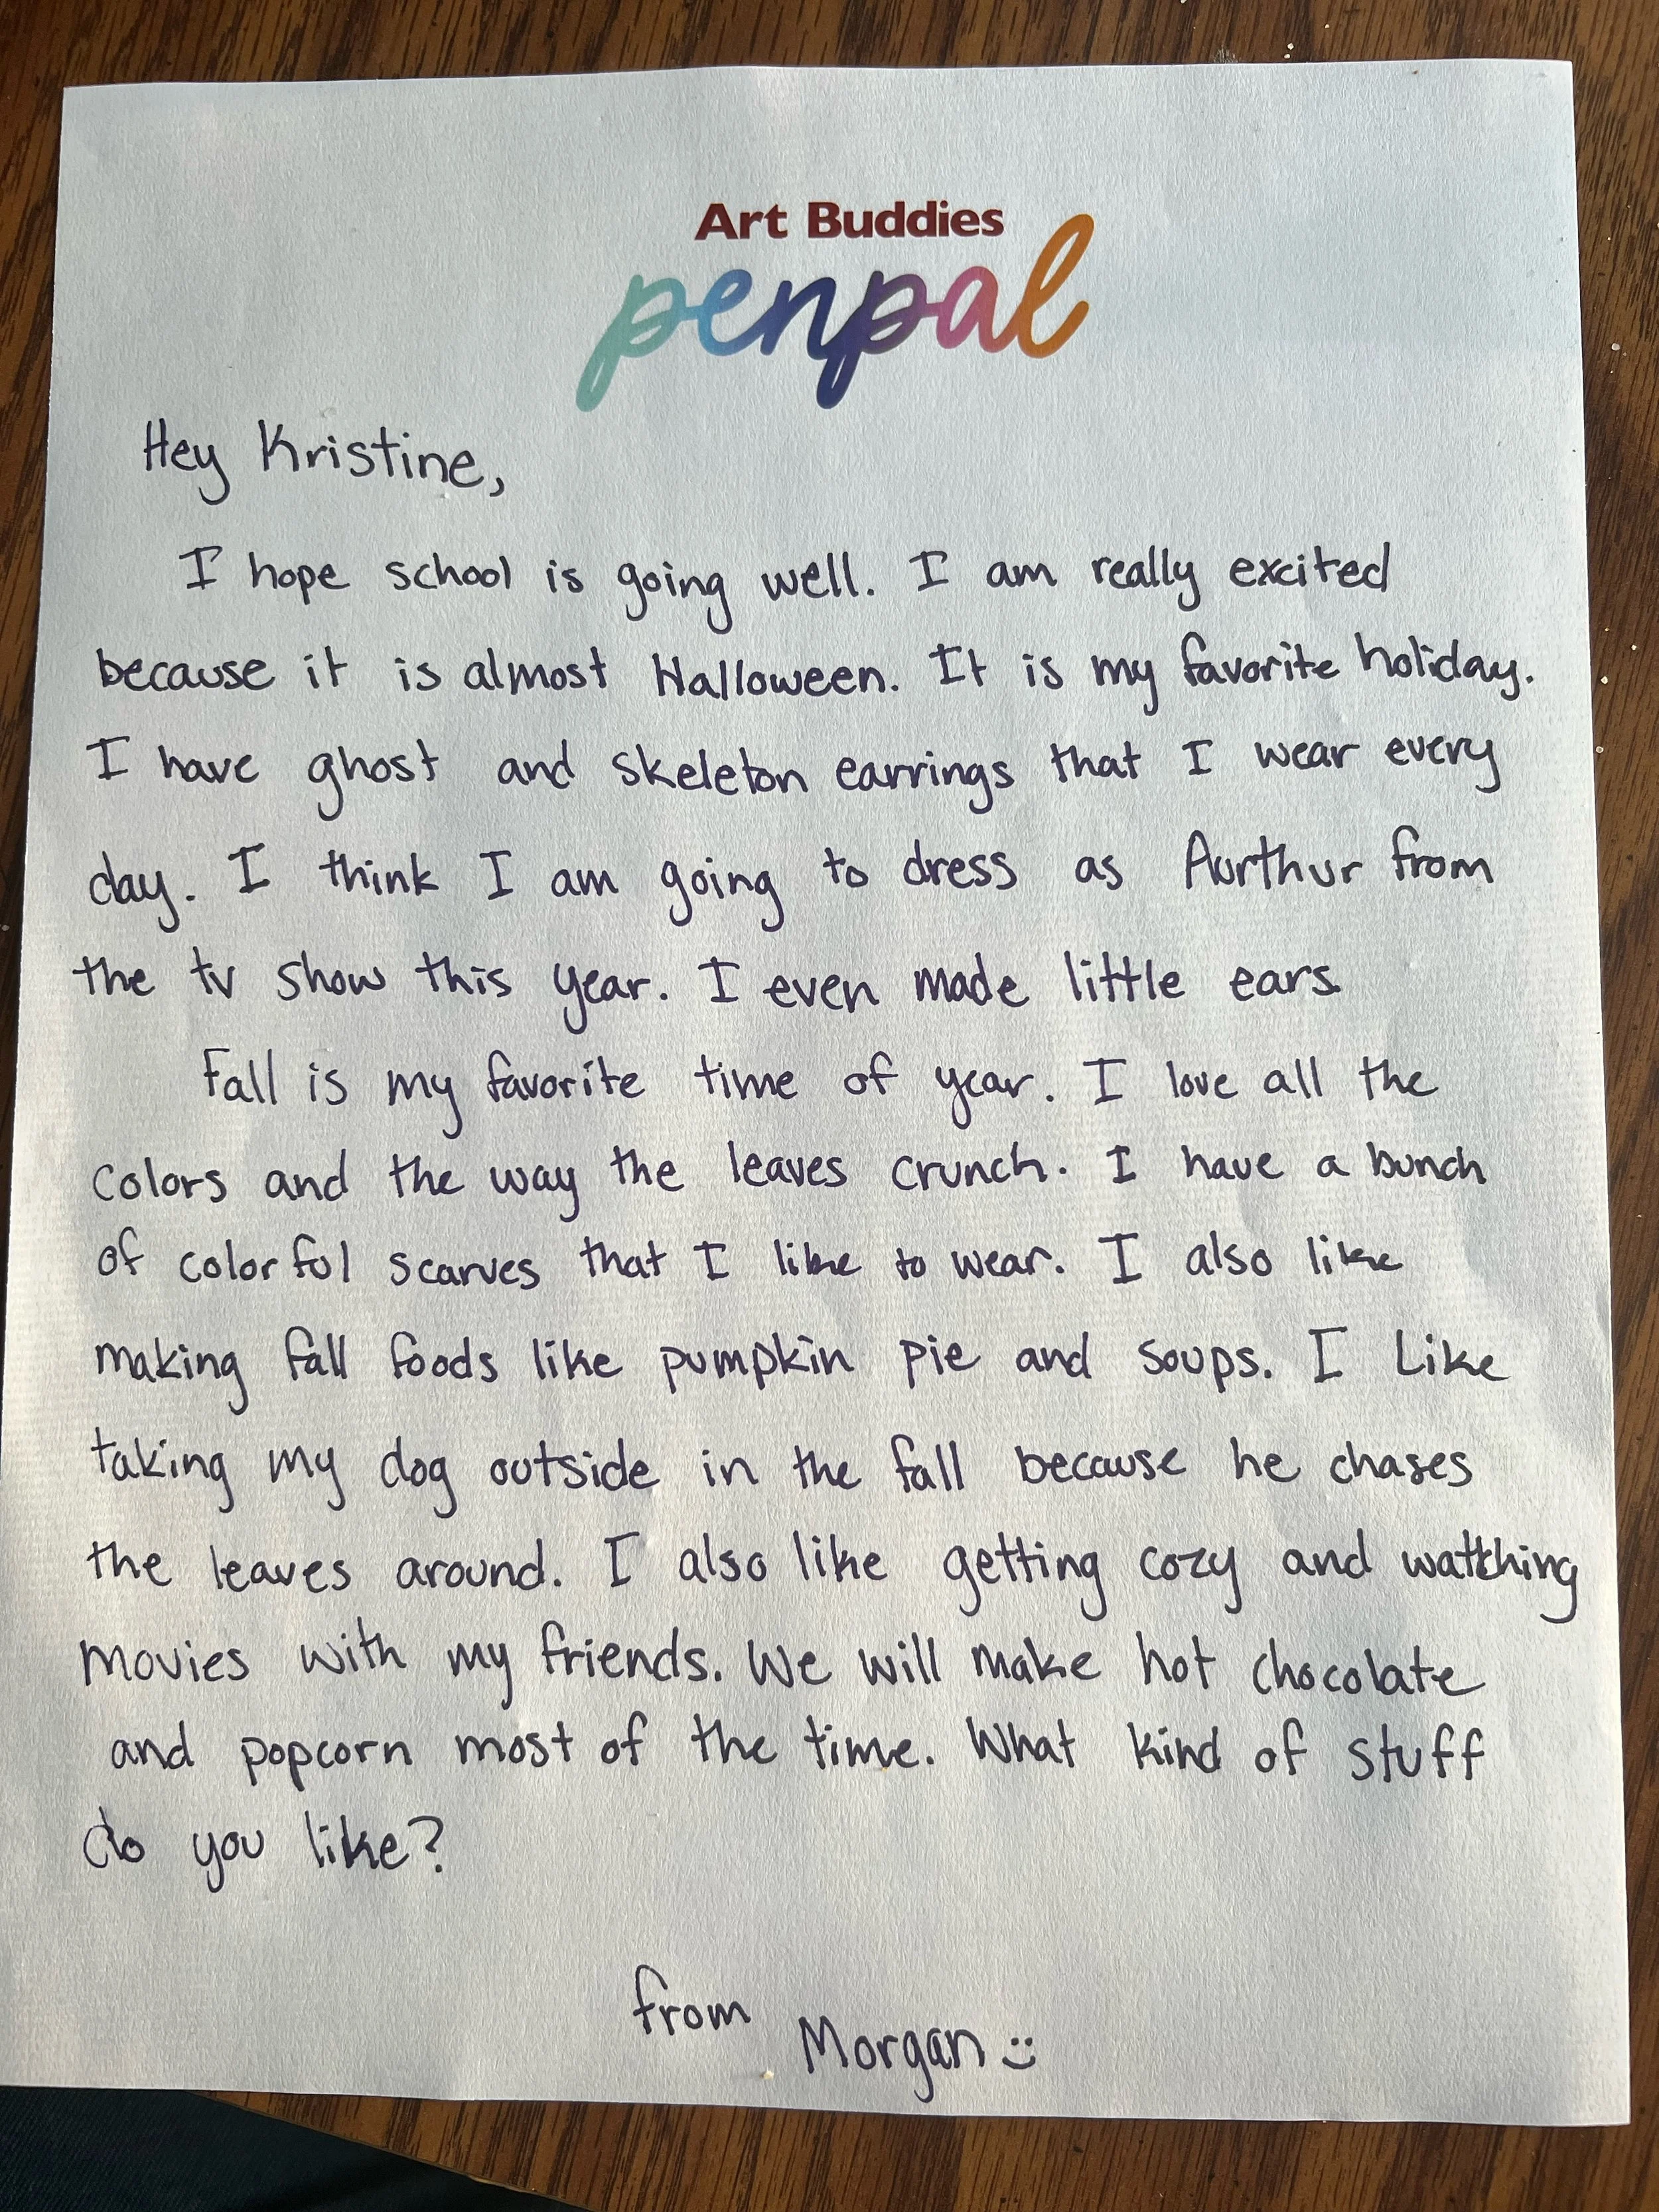 Art Buddies
penpal
Hey Kristine,
I hope school is going well. I am really excited
because it is almost Halloween. It is my favorite holiday.
I have ghost and skeleton earrings that I wear every
day. I think I am going to dress as Aurthur from
the tv show this year. I even made little ears.
Fall is my favorite time of year. I love all the
colors and the way the leaves crunch. I have a bunch
of colorful scarves that I like to wear. I also like
making fall foods like pumpkin pie and soups. I Like
taking my dog outside in the fall because he chases
the leaves around. I also like getting cozy and watching
movies with my friends. We will make hot chocolate
and popcorn most of the time. What kind of stuff
do you like?
from
Morgan :)